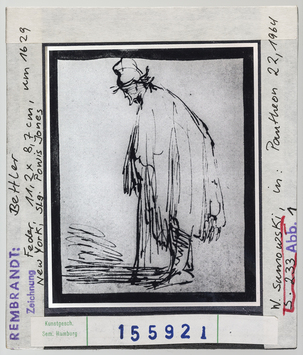 REMBRANDT: Bettler
Zeichnung Feder, 11,2 x 8,7 cm, um 1629
New York, Slg. Powis Jones
W. Sumowski in: Pantheon 22, 1964
S. 233 Abb. 1
Kunstgesch.
Semi. Hamburg
155921